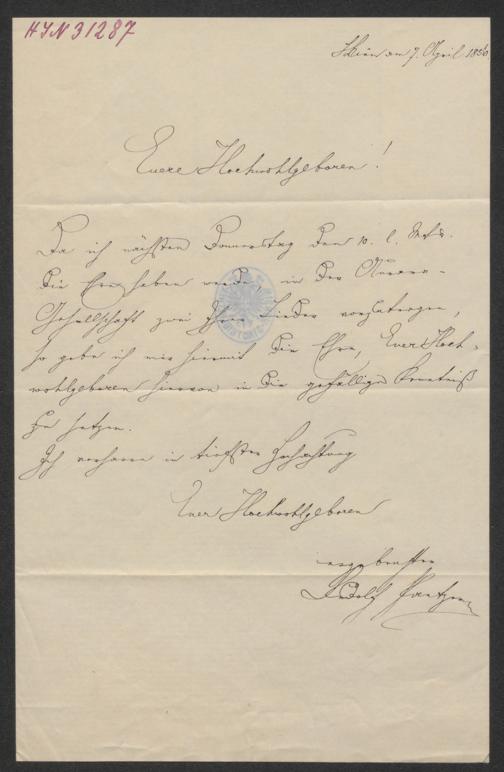 HIN 31287
Wien am 7. April 1856
Euere Hochwohlgeboren!
Da ich nächsten Donnerstag den 10. l. Mts.
die Ehre haben werde, in der
Gesellschaft zwei Ihrer Lieder vorzutragen,
so gebe ich mir hiermit die Ehre, Euer Hoch=
wohlgeboren hiervon in die gefällige Kenntniß
zu setzen.
Ich verharre in tiefster Hochachtung
Euer Hochwohlgeboren
ergebenster
Rudolf Panzer